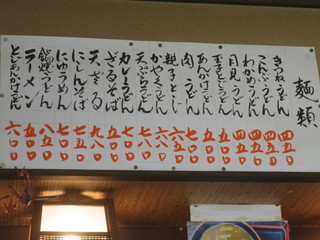 麺類
きつねうどん 四五〇
こんぶうどん 四五〇
わかめうどん 四五〇
月見うどん 四五〇
玉子とじうどん 五〇〇
あんかけうどん 五〇〇
肉うどん 七〇〇
親子とじ 六五〇
かやくうどん 六八〇
天ぷらうどん 七八〇
カレーうどん 七〇〇
ざるそば 五〇〇
天ざる 九八〇
にしんそば 七五〇
にゅうめん 七〇〇
鍋焼うどん 八五〇
ラーメン 五〇〇
とじあんかけうどん 六〇〇